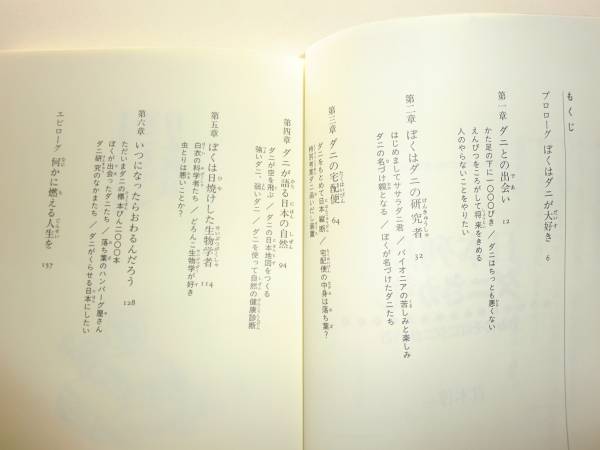 もくじ
プロローグ ぼくはダニが大好き 6
第一章 ダニとの出会い 12
かた足の下に一〇〇〇びき／ダニはちっとも悪くない
えんぴつをころがして将来をきめる
人のやらないことをやりたい
第二章 ぼくはダニの研究者 32
はじめましてササラダニ君／パイオニアの苦しみと楽しみ
ダニの名づけ親となる／ぼくが名づけたダニたち
第三章 ダニの宅配便 64
ダニをもとめて日本縦断／宅配便の中身は落ち葉？
第四章 ダニが語る日本の自然 94
ダニが空を飛ぶ／ダニの日本地図をつくる
強いダニ、弱いダニ／ダニを使って自然の健康診断
第五章 ぼくは日焼けした生物学者 114
白衣の科学者たち／どろんこ生物学が好き
虫とりは悪いことか？
第六章 いつになったらおわるんだろう 128
ただいまダニの標本びん二〇〇〇本
ぼくが出会ったダニたち／落ち葉のハンバーグ屋さん
ダニ研究のなかまたち／ダニがくらせる日本にしたい
エピローグ 何かに燃える人生を 157